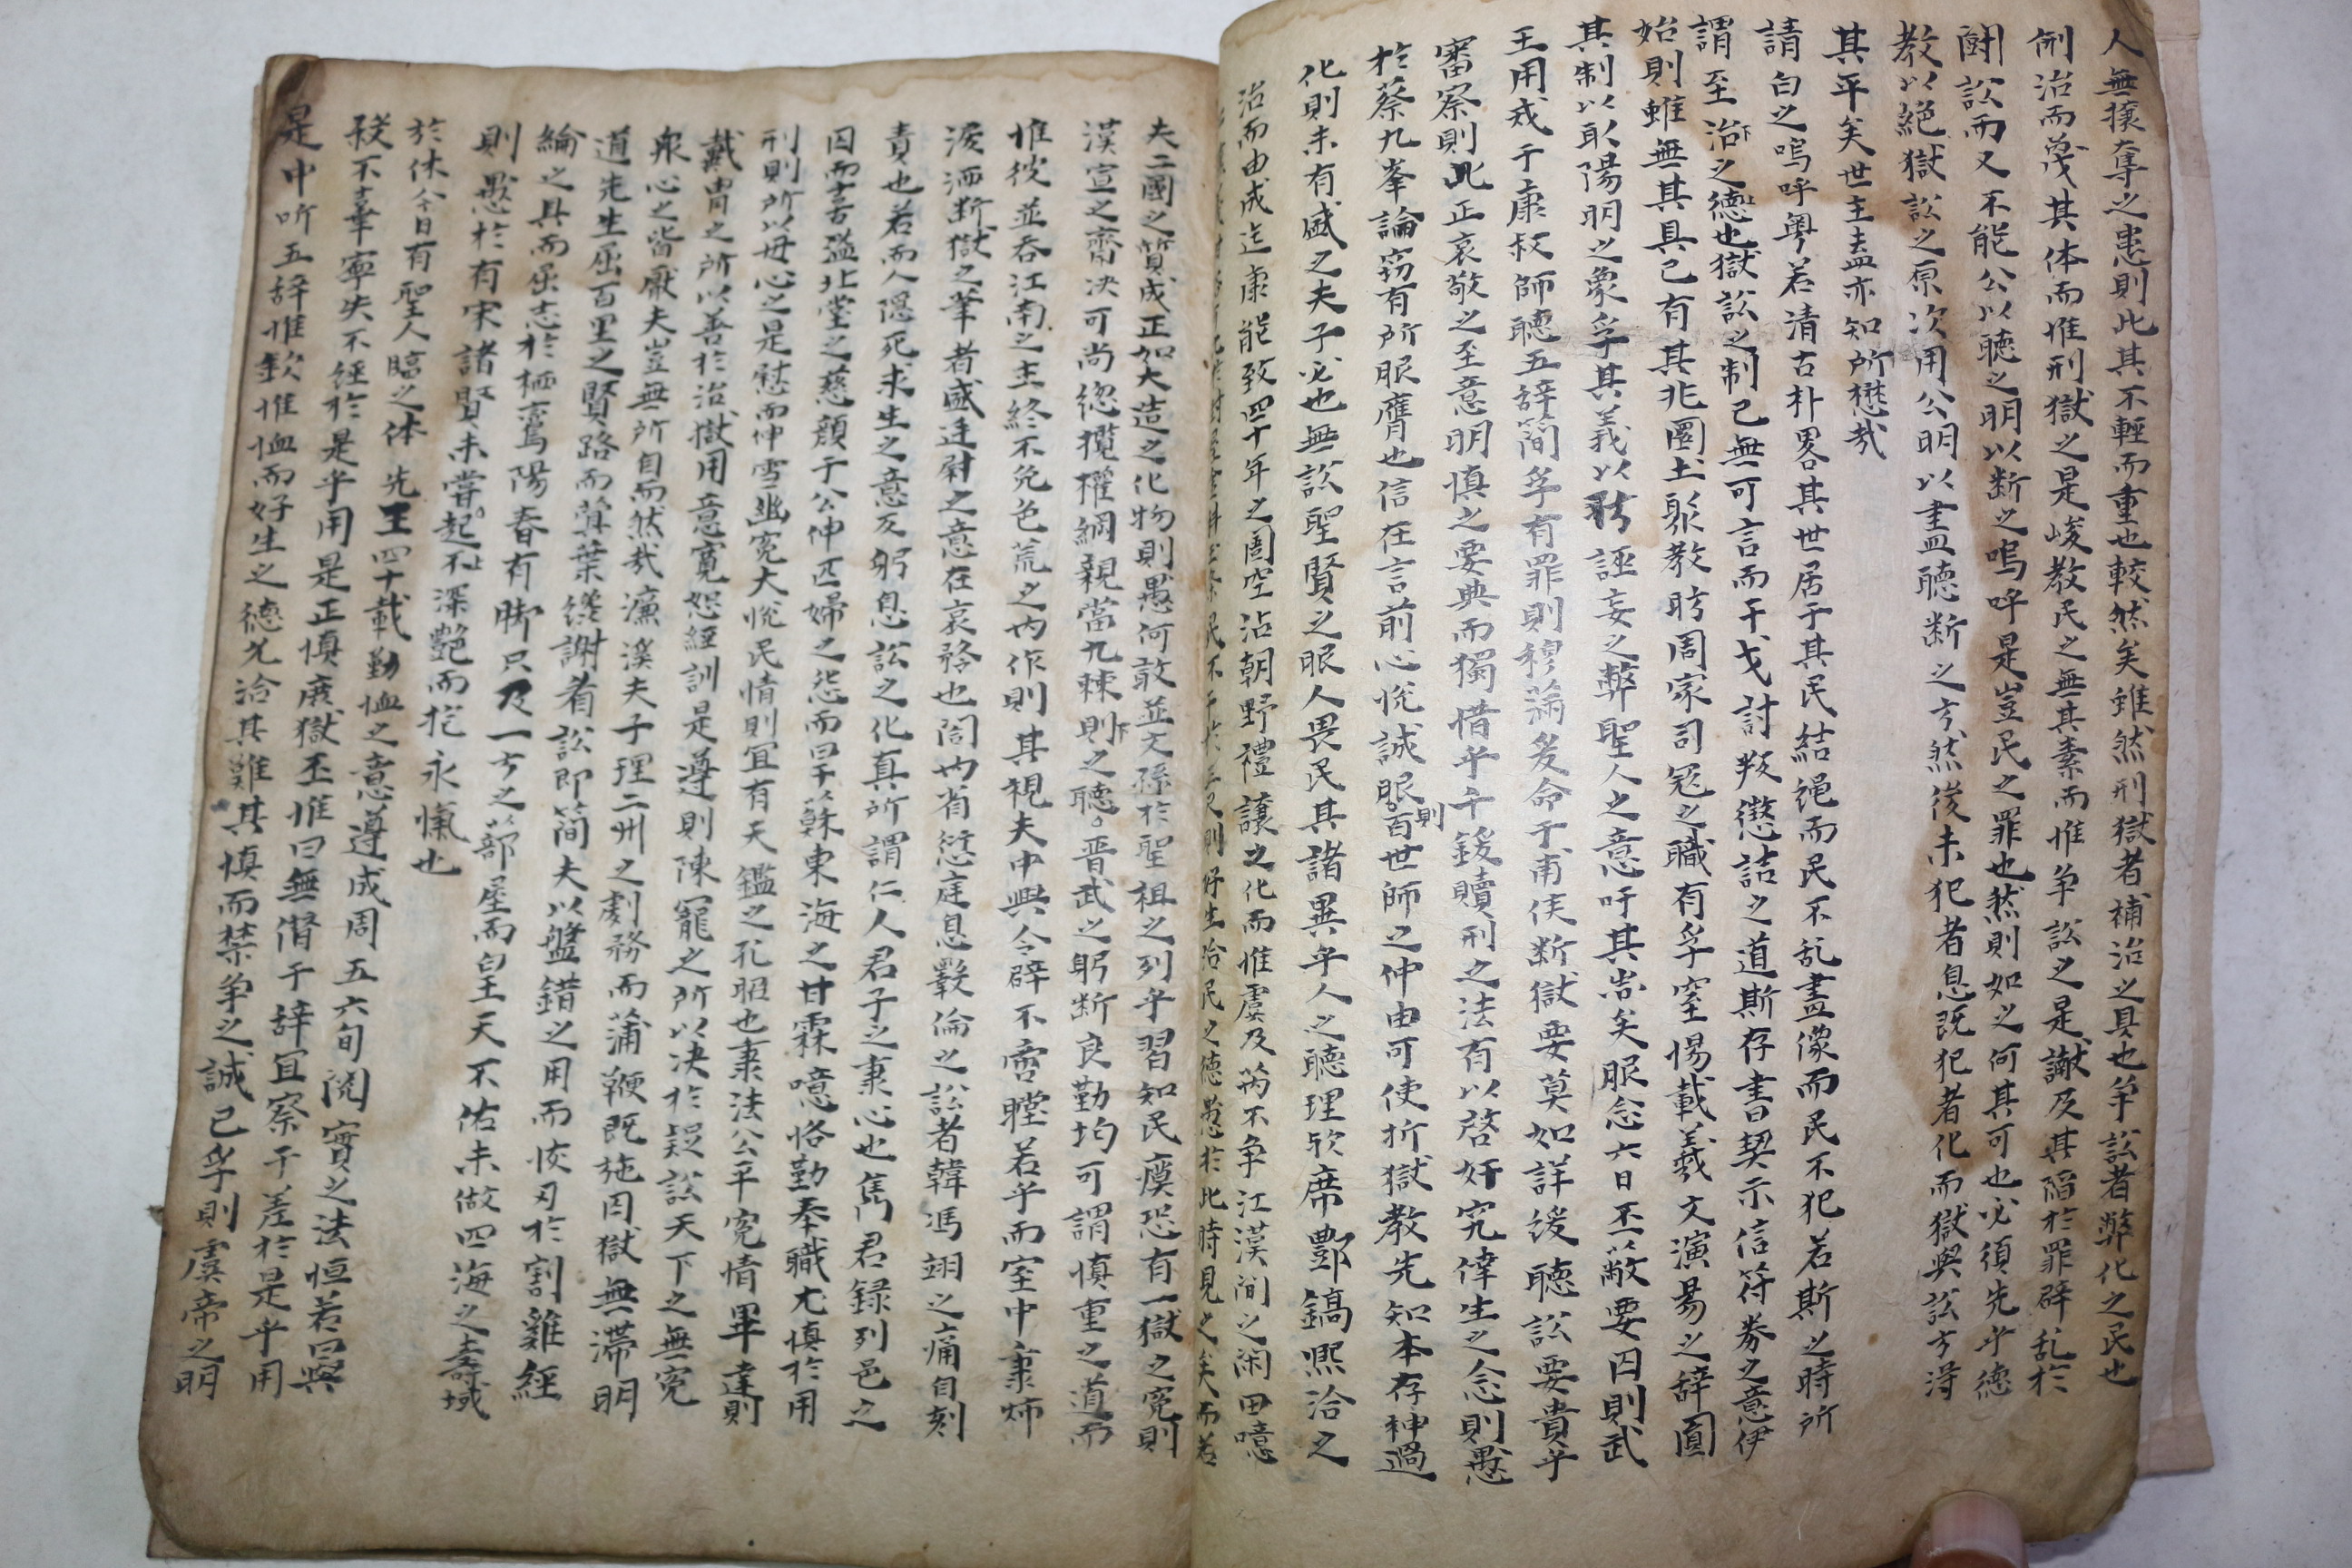 人無攘奪之患則此其不輕而重也較然矣雖然刑獄者補治之具也爭訟者弊化之民也
刑治而蔑其体而惟刑獄之是峻教民之無其素而惟争訟之是讞及其陷於罪辟乱於
鬪訟而又不能公以聴之明以断之嗚呼是豈民之罪也然則如之何其可也必須先乎德
教以絕獄訟之原次用公明以盡聴断之方然後未犯者息既犯者化而獄與訟方淂
其平矣世主盍亦知所懋㦲
請白之嗚呼粤若清古朴畧其世居于其民結繩而民不乱畫像而民不犯若斯之時所
謂至治之德也獄訟之制已無可言而干戈討叛懲詰之道斯存書契示信符券之意伊
始則雖無其具已有其兆圜土聚教昉周家司冦之職有孚窒惕載羲文演易之辞圓
其制以取陽明之象孚其義以誣妄之弊聖人之意吁其旹矣服念六日丕蔽要囚則武
王用戒于康叔師聴五辞簡孚有罪則穆滿爰命于甫侯断獄要莫如詳緩聴訟要貴乎
審察則此正哀敬之至意明慎之要典而獨惜乎千鍰贖刑之法有以啓奸宄倖生之念則愚
於蔡九峯論窃有所服膺也信在言前心悅誠服則百世師之仲由可使折獄教先知本存神過
化則未有盛之夫子必也無訟聖賢之服人畏民其諸異乎人之聴理欤席酆鎬熈洽之
治而由成迄康能致四十年之圄空沾朝野禮譲之化而惟虞及芮不争江漢间之闲田噫
民不于於三尺則好生洽民之德愚於此時見之矣而若
夫二國之質成正如大造之化物則愚何敢並文孫於聖祖之列乎習知民瘼恐有一獄之寃則
漢宣之齋决可尚総攬權綱親當九棘則之聴晋武之躬断良勤均可謂慎重之道而
惟彼並吞江南之主終不免色荒之内作則其視夫中興令辟不啻瞠若乎而室中秉炳
淚洒断獄之筆者盛廷尉之意在哀矜也閤内省愆庭息斁倫之訟者韓馮翊之痛自刻
責也若而人隠死求生之意反躬息訟之化真所謂仁人君子之秉心也雋君録列邑之
囚而喜溢北堂之慈顔于公伸匹婦之怨而旱蘇東海之甘霖噫恪勤奉職尤慎於用
刑則所以毋心之是慰而伸雪幽寃大悅民情則宜有天鑑之孔昭也秉法公平寃情畢達則
戴胄之所以善於治獄用意寬恕經訓是遵則陳寵之所以决於疑訟天下之無寃
衆心之皆厭夫豈無所自而然㦲濂溪夫子理二州之劇務而蒲鞭既施囹獄無滞明
道先生屈百里之賢路而蒉葉縂謝肴訟即簡夫以盤錯之用而恢刃於割雞經
綸之具而屈志於栖鸞陽春有脚只及一方之蔀屋而皇天不佑未做四海之壽域
則愚於有宋諸賢未嘗不深艷而起抱永愾也
於休今日有聖人臨之体先王四十載勤恤之意遵成周五六旬閲實之法恒若曰與
殺不辜寧失不經於是乎用是正慎庶獄丕惟曰無僭于辞宜察于差於是乎用
是中听五辞惟欽惟恤而好生之德允洽其難其慎而禁争之誠已孚則虞帝之明